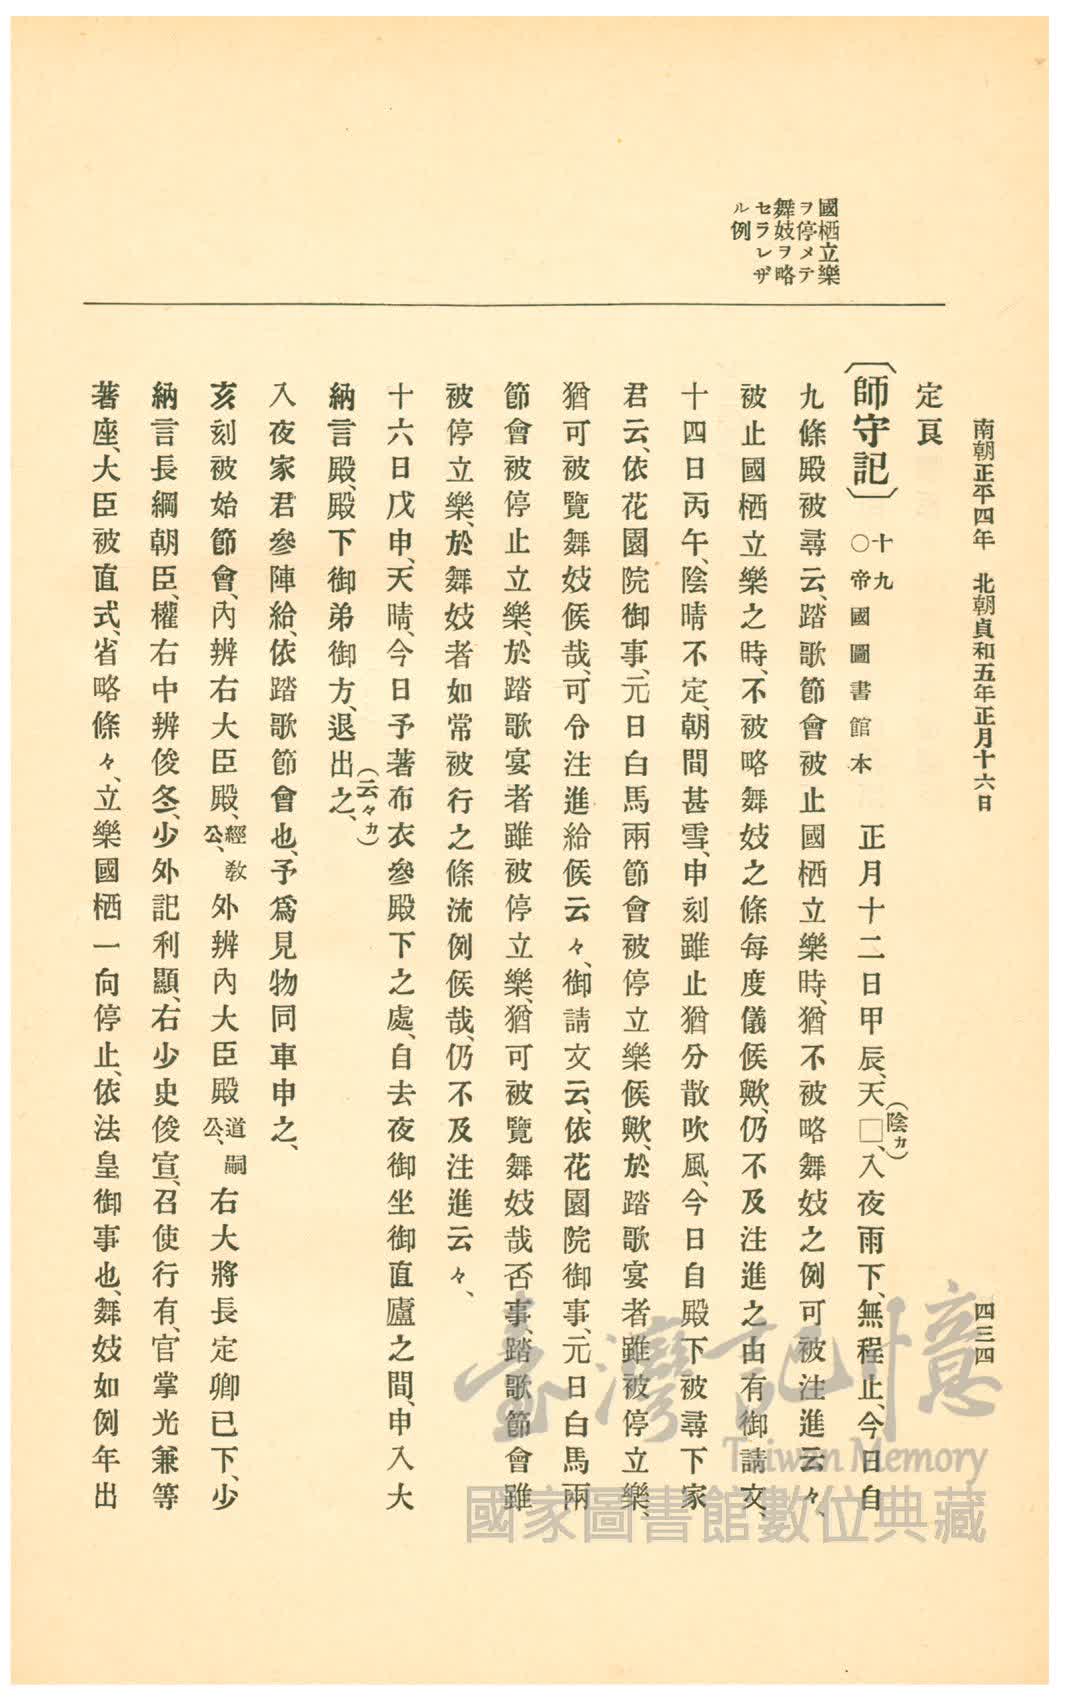 南朝正平四年　北朝貞和五年正月十六日
四三四
國栖立樂
ヲ停メテ
舞妓ヲ略
セラレザ
ル例
定長
〔師守記〕十九○帝國圖書館本　正月十二日甲辰、天□(陰カ)、入夜雨下、無程止、今日自
九條殿被尋云、踏歌節會被止國栖立樂時、猶不被略舞妓之例可被注進云々、
被止國栖立樂之時、不被略舞妓之條每度儀候歟、仍不及注進之由有御請文、
十四日丙午、陰晴不定、朝間甚雪、申刻雖止猶分散吹風、今日自殿下被尋下家
君云、依花園院御事、元日白馬兩節會被停立樂候歟、於踏歌宴者雖被停立樂、
猶可被覽舞妓候哉、可令注進給候云々、御請文云、依花園院御事、元日白馬兩
節會被停止立樂、於踏歌宴者雖被停立樂、猶可被覽舞妓哉否事、踏歌節會雖
被停立樂、於舞妓者如常被行之條流例候哉、仍不及注進云々、
十六日戊申、天晴、今日予著布衣參殿下之處、自去夜御坐御直廬之間、申入大
納言殿、殿下御弟御方、退出之(云々カ)、
入夜家君參陣給、依踏歌節會也、予爲見物同車申之、
亥刻被始節會、內辨右大臣殿、經敎公、外辨內大臣殿道嗣公、右大將長定卿已下、少
納言長綱朝臣、權右中辨俊冬、少外記利顯、右少史俊宣、召使行有、官掌光兼等
著座、大臣被直式、省略條々、立樂國栖一向停止、依法皇御事也、舞妓如例年出
臺灣記憶
Taiwan Memory
國家圖書館數位典藏